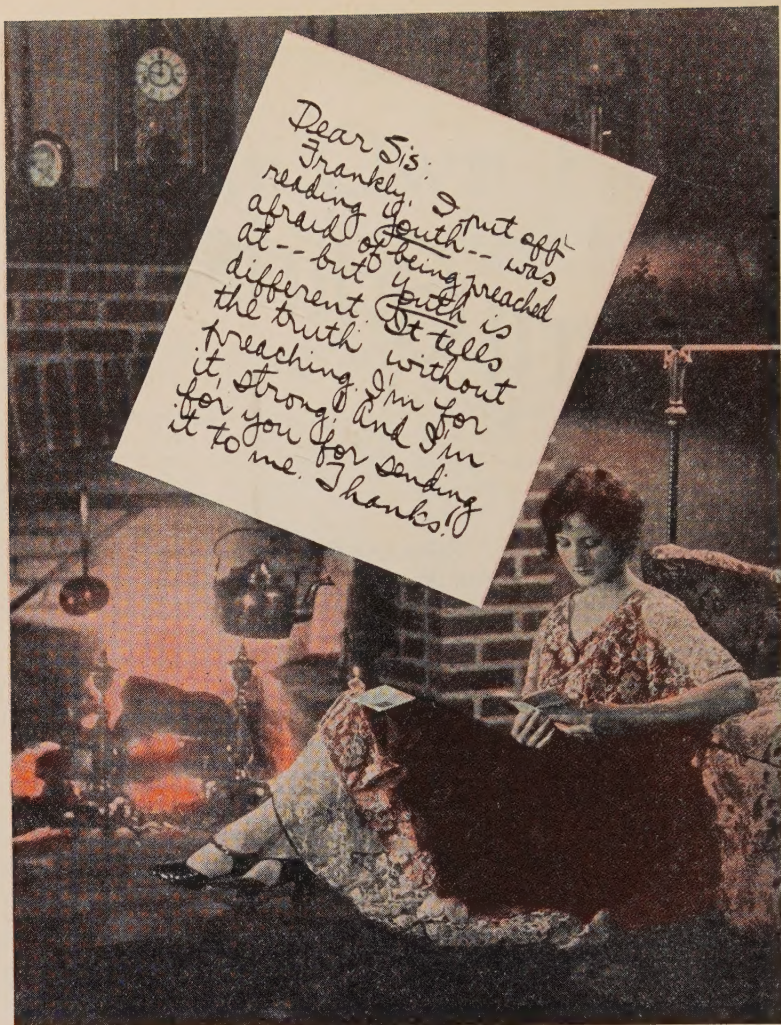 Dear Sis:
Frankly, I put off
reading Youth -- was
afraid of being preached
at -- but Youth is
different. It tells
the truth without
preaching. I'm for
it, strong, and I'm
for you for sending
it to me. Thanks!